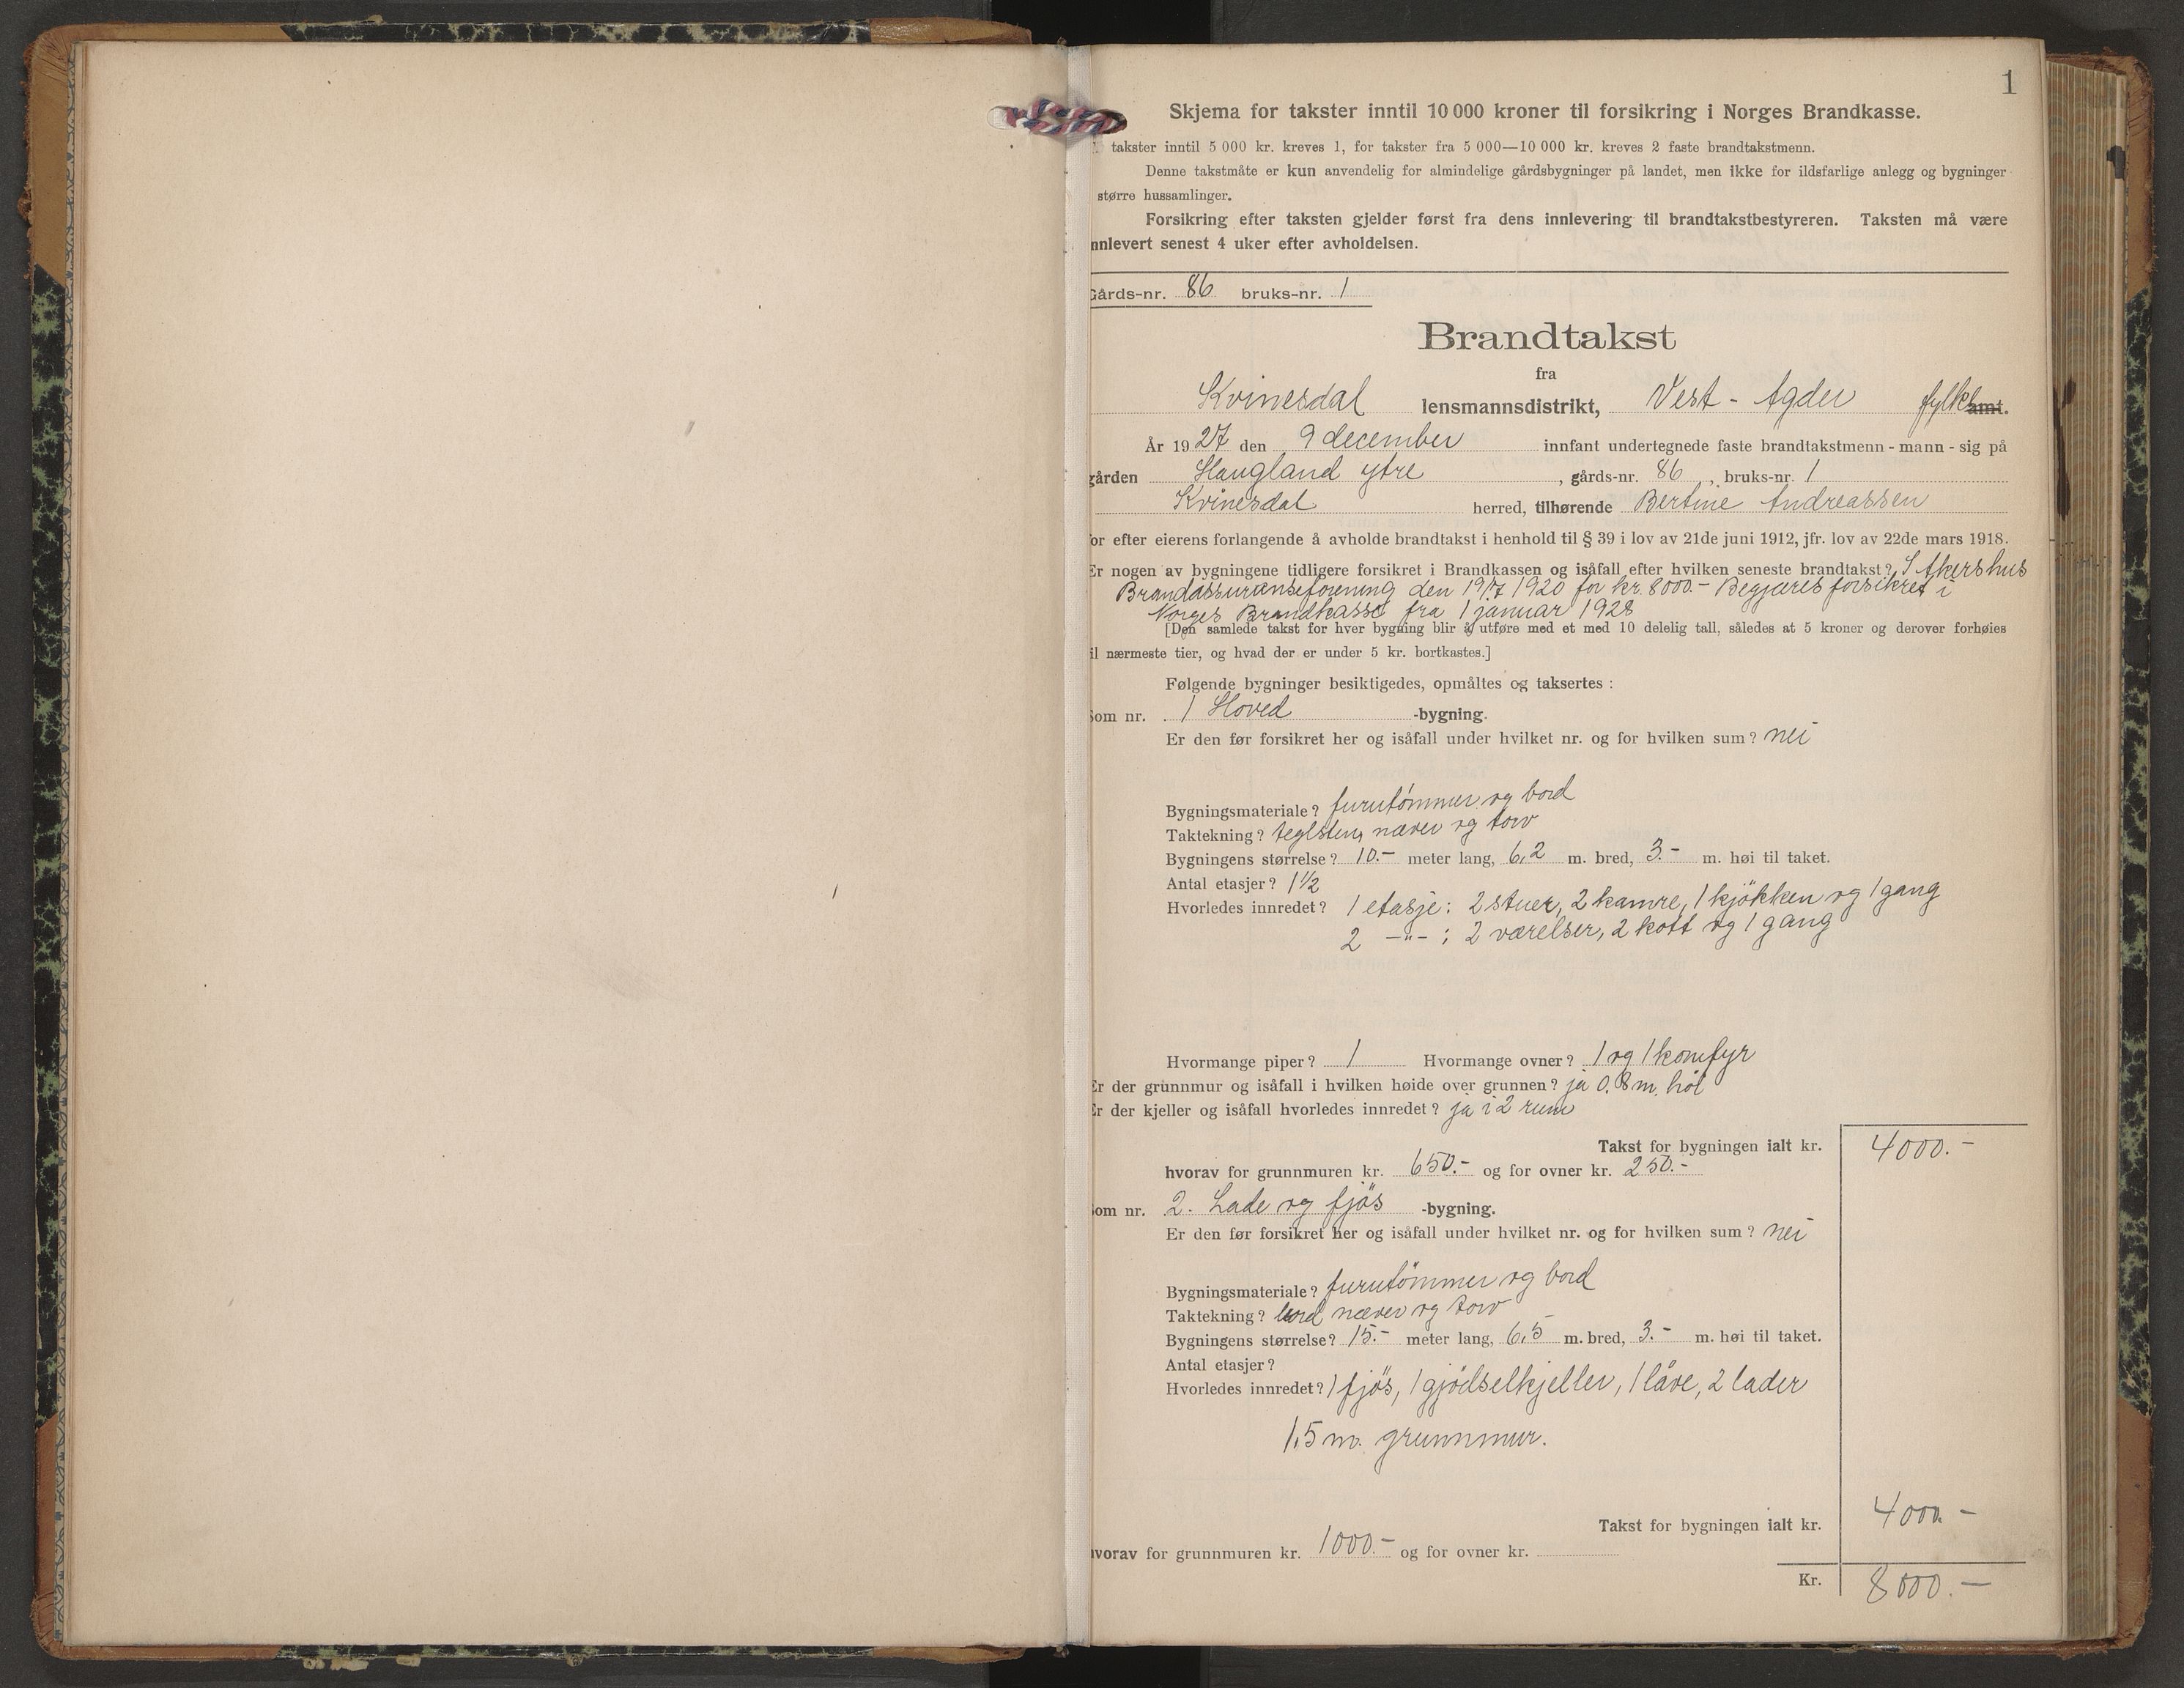 1
Skjema for takster inntil 10 000 kroner til forsikring i Norges Brandkasse.
takster inntil 5 000 kr. kreves 1, for takster fra 5 000—10 000 kr. kreves 2 faste brandtakstmenn.
Denne takstmåte er kun anvendelig for almindelige gårdsbygninger på landet, men ikke for ildsfarlige anlegg og bygninger
større hussamlinger.
Forsikring efter taksten gjelder først fra dens innlevering til brandtakstbestyreren. Taksten må være
nnlevert senest 4 uker efter avholdelsen.
Gårds-nr. 86 bruks-nr. 1
Brandtakst
fra
Kvinesdal lensmannsdistrikt, Vest-Agder fylke amt.
År 1927 den 9 december innfant undertegnede faste brandtakstmenn - mann - sig på
gården Haugland ytre, gårds-nr. 86, bruks-nr. 1
Kvinesdal herred, tilhørende Bertine Andreassen
or efter eierens forlangende å avholde brandtakst i henhold til § 39 i lov av 21de juni 1912, jfr. lov av 22de mars 1918.
Er nogen av bygningene tidligere forsikret i Brandkassen og isåfall efter hvilken seneste brandtakst? I Akershus
Brandassuranseforening den 19/7 1920 for kr. 8000.- Begjæres forsikret i
Norges Brandkasse fra 1 januar 1928
[Den samlede takst for hver bygning blir å utføre med et med 10 delelig tall, således at 5 kroner og derover forhøies
il nærmeste tier, og hvad der er under 5 kr. bortkastes.]
Følgende bygninger besiktigedes, opmåltes og taksertes :
Som nr. 1 Hoved -bygning.
Er den før forsikret her og isåfall under hvilket nr. og for hvilken sum? nei
Bygningsmateriale? furutömmer og bord
Taktekning? teglsten, næver og torv
Bygningens størrelse? 10.- meter lang, 6,2 m. bred, 3.- m. høi til taket.
Antal etasjer? 1 1/2
Hvorledes innredet? 1 etasje: 2 stuer, 2 kamre, 1 kjökken og 1 gang
2 -"- : 2 værelser, 2 kott og 1 gang
Hvormange piper? 1 Hvormange ovner? 1 og 1 komfyr
Er der grunnmur og isåfall i hvilken høide over grunnen? ja 0.8 m. höi
Er der kjeller og isåfall hvorledes innredet? ja i 2 rum
Takst for bygningen ialt kr. 4000.-
hvorav for grunnmuren kr. 650.- og for ovner kr. 250.-
om nr. 2. Lade og fjös -bygning.
Er den før forsikret her og isåfall under hvilket nr. og for hvilken sum? nei
Bygningsmateriale? furutömmer og bord
Taktekning? bord næver og torv
Bygningens størrelse? 15.- meter lang, 6,5 m. bred, 3.- m. høi til taket.
Antal etasjer?
Hvorledes innredet? 1 fjös, 1 gjödselkjeller, 1 låve, 2 lader
1,5 m. grunnmur.
Takst for bygningen ialt kr. 4000.-
hvorav for grunnmuren kr. 1000.- og for ovner kr.
Kr. 8000.-